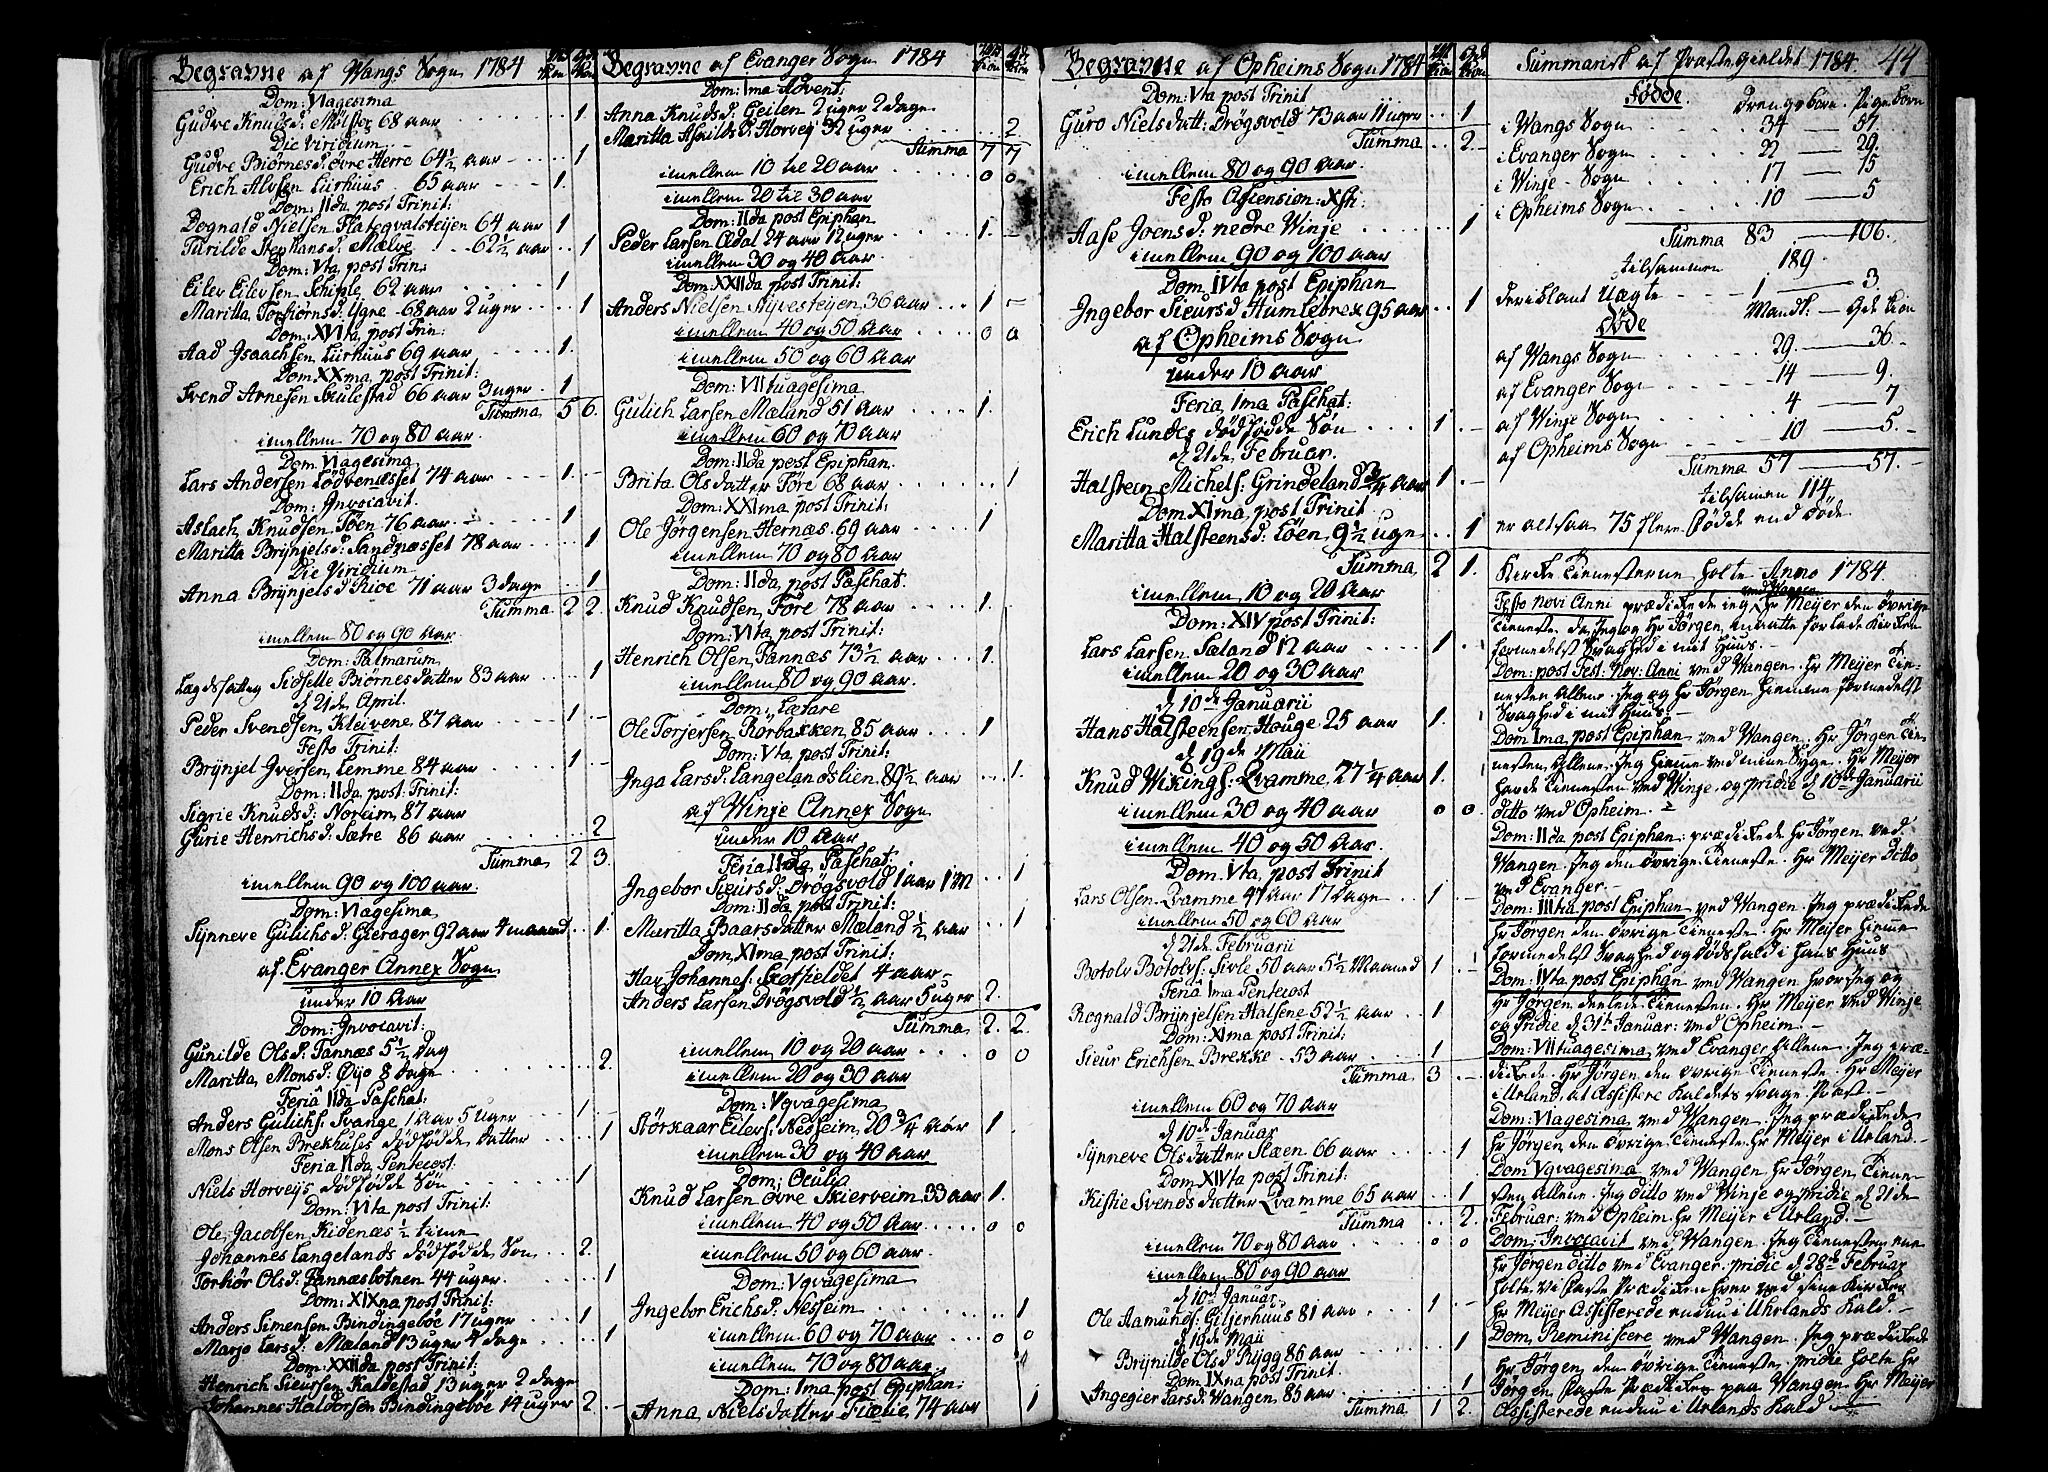 Begravne af Wangs Sogn 1784
Dom: VIagesima
Gudve Knudsd: Mølster 68 aar 1
Die Viridium
Gudve Biørnesd: øvre Herre 64½ aar 1
Erich Alvsen Lirhuus 65 aar 1.
Dom: IIda post Trinit:
Dognald Nielsen Flateqvalsteijen 64 aar 1
Turilde Stephansd: Mælve 62½ aar 1
Dom: Vta, post Trin:
Eilev Eilevsen Schiple 62 aar 1
Maritta Torbiornsd: Ygre 68 aar 2 uger 1
Dom: XVIta, post Trin:
Aad Jsaachsen Lirhuus 69 aar 1.
Dom XXma, post Trinit:
Svend Arnesen Skulestad 66 aar 3 uger 1
Summa 5 6.
imellem 70 og 80 aar.
Dom: VIagesima
Lars Andersen Lødvenæsset 74 aar 1.
Dom: Jnvocavit.
Aslach Knudsen Tøen 76 aar 1
Maritta Brÿnjelsd: Sandnæsset 78 aar 1
Die Viridium
Anna Brÿnjelsd Rioe 71 aar 3 dage 1
Summa 2 2.
imellem 80 og 90 aar.
Dom: Palmarum
Lægdsfattig Sidselle Biørnesdatter 83 aar 1
d 21de April.
Peder Svendsen, Kleivene 87 aar 1
Festo Trinit:
Brÿnjel Jversen, Lemme 84 aar 1
Dom: IIda post Trinit:
Sigrie Knudsd: Noreim, 87 aar
Gurie Henrichsd: Sætre 86 aar 2
Summa 2 3.
imellem 90 og 100 aar.
Dom: VIagesima
Sÿnneve Gulichsd: Gierager 92 aar 4 maaned 1.
af Evanger Annex Sogn
under 10 Aar
Dom: Jnvocavit:
Gunilde Olsd: Fannæs 5½ dag
Maritta, Monsd: Øÿo 8 dage 2.
Feria IIda Paschat:
Anders Gulichs: Svange 1 aar 5 uger 1
Mons Olsen Brekhuses dødfødde datter 1
Feria IIda Pentecost:
Niels Horveijs dødfødde Søn 1
Dom: VIta post Trinit:
Ole, Jacobsen, Kidenæs ½ time
Johannes Langelands dødfødde Søn 2.
Torbør Olsd: Fannæsbotnen 44 uger. 1
Dom: XIXna post Trinit:
Anders Simensen Bindingeboe 17 uger 1
Margo Larsd: Mæland 13 uger 4 dage 1
Dom: XXIIda post Trinit:
Henrich Sieursen Kaldestad 13 uger 2 dage
Johannes Haldorsen Bindingeboe 14 uger 2.
Begravne af Evanger Sogn 1784
Dom: Ima Advent:
Anna Knudsd: Geilen 2 uger 2 dage
Maritta Asvilds d: Horveij 32 uger 2
Summa 7 7
imellem 10 til 20 aar 0 0
imellem 20 til 30 aar
Dom: IIda post Epiphan
Peder Larsen Ædal 24 aar 12 uger 1
imellem 30 og 40 aar
Dom: XXIIda post Trinit:
Anders Nielsen Nÿvesteijen 36 aar 1 –
imellem 40 og 50 aar 0 0
imellem 50 og 60 aar
Dom: VIItuagesima
Gulich Larsen Mæland 51 aar 1.
imellem 60 og 70 aar
Dom: IIda post Epiphan.
Brita Olsdatter Føre 68 aar 1
Dom: XXIma, post Trinit:
Ole Jørgensen Hernæs 69 aar 1
imellem 70 og 80 aar
Dom: IIda, post Paschat:
Knud Knudsen, Føre 78 aar 1.
Dom: VIta, post Trinit:
Henrich Olsen, Fannæs 73½ aar 1.
imellem 80 og 90 aar.
Dom: Lætare
Ole Torjersen Rørbakken 85 aar 1
Dom: Vta, post Trinit:
Jnga Larsd: Langelandslien 89½ aar 1.
af Winje Annex Sogn
under 10 Aar
Feria IIda Paschat:
Ingebor Sieursd: Drøgsvold 1 aar 1 M 1
Dom: IIda, post Trinit:
Maritta Baarsdatter Mæland ½ aar 1
Dom: XIma, post Trinit:
Anders Larsen, Drøgsvold ½ aar 5 uger 2.
Summa 2. 2.
imellem 10 og 20 aar 0 0
imellem 20 og 30 aar
Dom: Vqvagesima
Størkaar Eilevs: Nesheim, 20 ¾ Aar 1
imellem 30 og 40 aar
Dom: Oculij
Knud Larsen øvre Skierveim 33 aar 1.
imellem 40 og 50 Aar 0 0
imellem 50 og 60 aar.
Dom: Vqvagesima
Ingebor Erichsd: Nesheim 1
imellem 60 og 70 aar 0 0
imellem 70 og 80 aar.
Dom: Ima post Epiphan:
Anna Nielsdatter 74 aar 1
Begravne af Opheims Sogn 1784
Dom: Vta post Trinit
Guro Nielsdatt: Drøgsvold 73 aar 11 uger 1
Summa 2
imellem 80 og 90 aar.
Festo Ascension: Xsti:
Aase Joensd: nedre Winje 1
imellem 90 og 100 aar
Dom IVta post Epiphan
Ingebor Sieursd Humlebrek 95 aar 1
af Opheims Sogn
under 10 aar
Feria Ima Paschat:
Erich Lundes dødfødde Søn 1
d 21de Februar.
Halsteen Michels: Grindeland ¾ aar 1
Dom XIma, post Trinit
Maritta Halsteensd: Løen, 9½ uge 1
Summa 2 1.
imellem 10 og 20 Aar
Dom: XIV post Trinit:
Lars Larsen Sæland 12 aar 1
imellem 20 og 30 Aar.
d 10de Januarii
Hans Halsteensen Houge 25 aar 1
d 19de Maii
Knud Wikings: Qvamme 27¼ aar 1.
imellem 30 og 40 aar 0 0
imellem 40 og 50 Aar.
Dom: Vta, post Trinit
Lars Olsen Qvamme 47 aar 17 dage 1
imellem 50 og 60 aar
d 21de Februarii
Botolv Botolvs: Sivle 50 aar 5½ Maaned 1
Feria Ima Pentecost
Rognald Brÿnjelsen Halsene 52½ aar 1
Dom: XIma post Trinit:
Sieur Erichsen Brekke 53 aar 1
Summa 3
imellem 60 og 70 aar
d 10de Januar
Sÿnneve Olsdatter Slæen 66 aar 1
Dom: XIVta post Trinit:
Kistie Svendsdatter Qvamme 65 aar 1
Summa 2.
imellem 70 og 80 aar 0 0
imellem 80 og 90 aar
d 10de Januar
Ole Aamunds: Giljerhuus 81 aar 1
d 19de Maii
Brÿnilde Olsd Rÿgg 86 aar 1
Dom: IXna post Trinit.
Ingegier Larsd: Wangen, 85 aar 1
Summa 1 2.
Summarisk af Præstegieldet 1784. 44
Fødde. Drengebørn. Pigebørn
i Wangs Sogn 34 — 57
i Evanger Sogn 22 — 29.
i Winje Sogn 17 — 15
i Opheims Sogn 10 — 5
Summa 83 — 106.
tilsammen 189.
deriblant Uægte 1 — 3.
Døde Mandk: — Qvindkion
af Wangs Sogn 29. — 36.
af Evanger Sogn 14 — 9.
af Winje Sogn 4 — 7
af Opheims Sogn 10 — 5.
Summa 57 — 57.
tilsamen 114
er altsaa 75 flere Fødde end døde.
Kirke Tienesterne holte Anno 1784.
Festo Novi Anni prædikede jeg ved Wangen, Hr Meijer den øvrige
Tieneste, da Jeg og Hr Jørgen, maatte forlade Kirken
formedelst Svaghed i mit Huus.
Dom: post Fest: Nov: Anni ved Wangen. Hr Meijer Tie-
nesten Allene. Jeg og Hr Jørgen hiemme formedelst
Svaghed i mit Huus.
Dom Ima, post Epiphan ved Wangen. Hr Jørgen Tie-
nesten Allene. Jeg hiemme ved mine Sÿge. Hr Meijer
havde Tienesten ved Winje, og pridie d 10de Januarii
ditto ved Opheim.
Dom: IIda post Epiphan: prædikede Hr Jørgen ved
Wangen. Jeg den øvrige Tieneste. Hr Meijer ditto
ved Evanger.
Dom: IIItia post Epiphan ved Wangen. Jeg prædikede
Hr Jørgen den øvrige Tieneste. Hr Meijer hiemme
formedelst Svaghed og dødsfald i hans Huus
Dom: IVta post Epiphan ved Wangen hvor Jeg og
Hr Jørgen deelede Tienesten. Hr Meijer ved Winje
og Pridie d 31te Januar: ved Opheim.
Dom: VIItuagesima, ved Evanger Allene. Jeg præ-
dikede. Hr Jørgen den øvrige Tieneste. Hr Meijer
i Urland, at Assistere Kaldets svage Præst.
Dom: VIagesima, ved Wangen. Jeg prædikede
Hr Jørgen den øvrige Tieneste. Hr Meijer i Urland.
Dom Vqvagesima ved Wangen, Hr Jørgen, Tiene-
sten Allene. Jeg ditto ved Winje og pridie d 21de
Februar: ved Opheim. Hr Meijer i Urland.
Dom: Invocavit ved Wangen. Jeg Tienesten ene
Hr Jørgen ditto ved Evanger. pridie d 28de Februar
holte vi faste Prædiken hver ved sine Kirker
Hr Meijer Assisterede endnu i Uhrlands Kald.
Dom, Reminiscere ved Wangen. Jeg prædikede
Hr Jørgen, den øvrige Tieneste. pridie holte Hr
Jørgen, faste Prædiken paa Wangen. Hr Meijer
Assisterede endnu i Urlands Kald